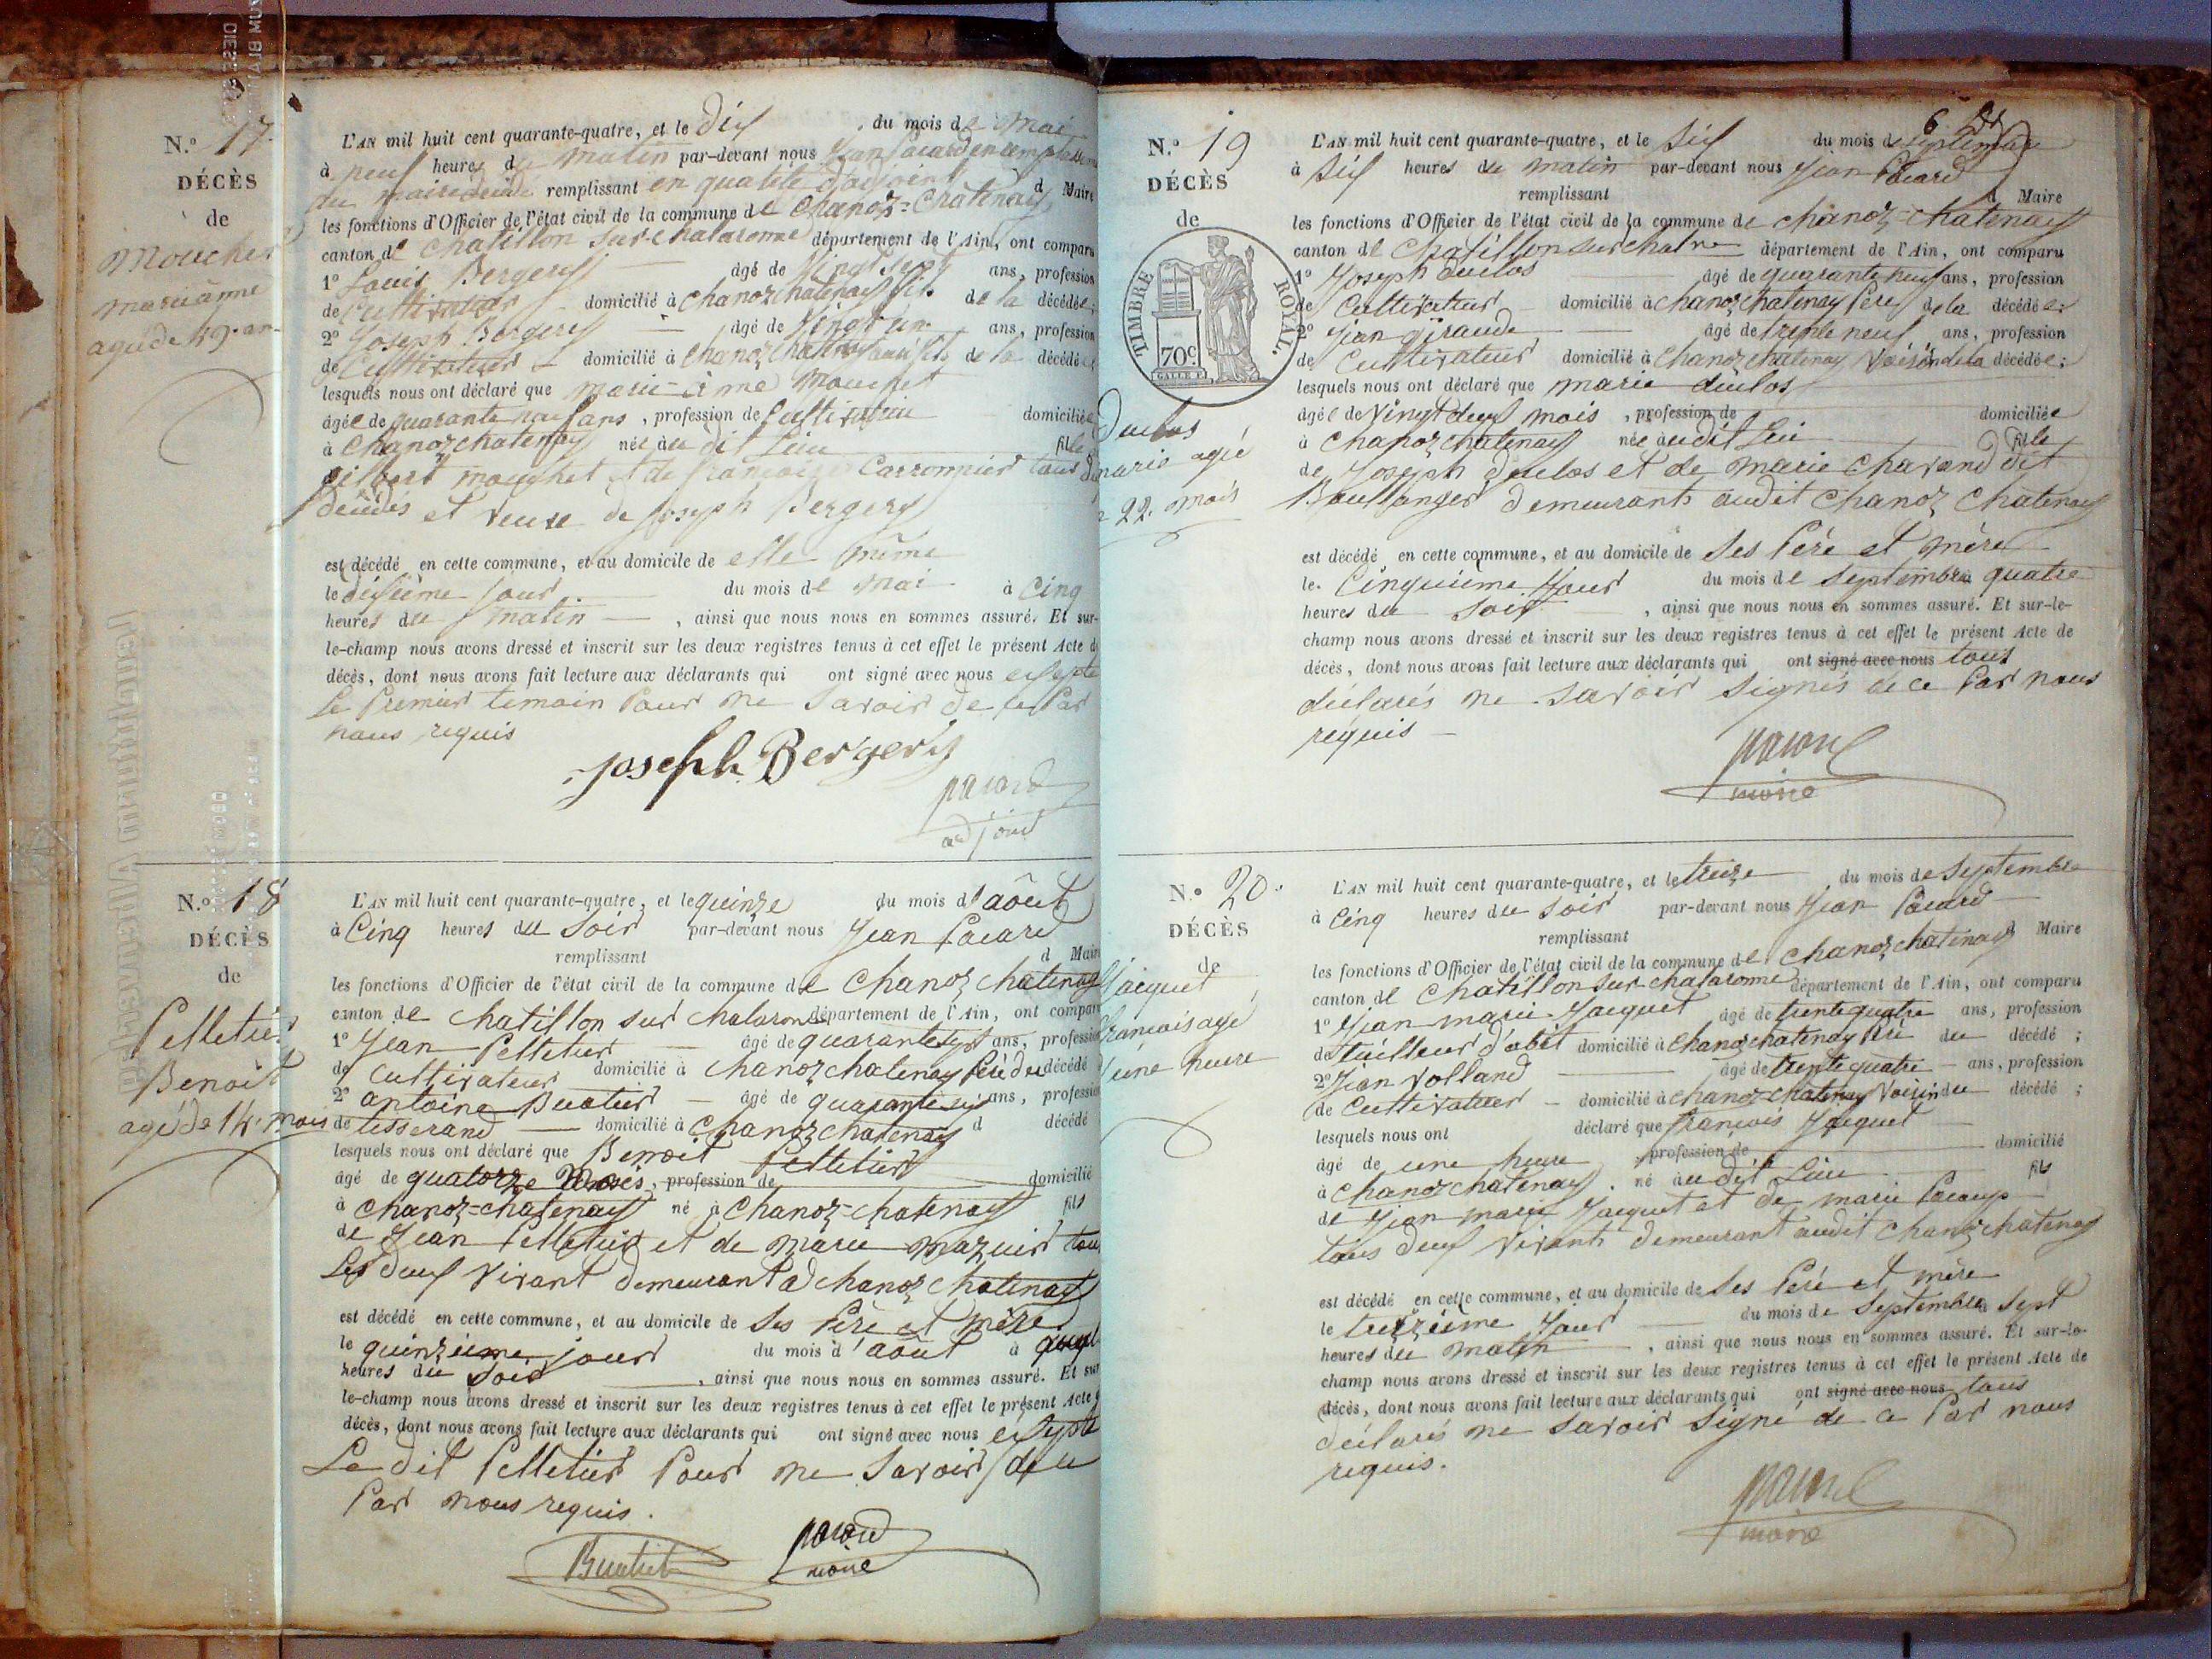 N.° 17.
DÉCÈS
de
Mouchet
marie-anne
agée de 49. an
L'AN mil huit cent quarante-quatre, et le dix du mois de mai
à neuf heures du matin par-devant nous Jean pacard en remplacement
du maire remplissant en qualité d'adjoint d Maire
les fonctions d'Officier de l'état civil de la commune de Chanoz-Chatenay
canton de Chatillon sur chalaronne département de l'Ain, ont comparu
1° Louis Bergery âgé de vingt sept ans, profession
de Cultivateur domicilié à Chanoz chatenay fils de la décédée;
2° Joseph Bergery âgé de vingt un ans, profession
de Cultivateur domicilié à Chanoz Chatenay aussi fils de la décédée
lesquels nous ont déclaré que marie-anne Mouchet
âgée de quarante neuf ans, profession de Cultivatrice domiciliée
à Chanoz chatenay née au dit Lieu fille
gilbert mouchet et de françoise Carronnier tous
décédés et veuve de Joseph Bergery
est décédé en cette commune, et au domicile de elle même
le dixième jour du mois de mai à Cinq
heures du matin, ainsi que nous nous en sommes assuré. Et sur-
le-champ nous avons dressé et inscrit sur les deux registres tenus à cet effet le présent Acte d
décès, dont nous avons fait lecture aux déclarants qui ont signé avec nous exsepté
Le Premier temoin Pour ne Savoir de ce Par
nous requis
Joseph Bergery
pacard
adjoint
N.° 18
DÉCÈS
de
Pelletier
Benoit
agé de 14. mois
L'AN mil huit cent quarante-quatre, et le quinze du mois d'août
à Cinq heures du Soir par-devant nous Jean Pacard
remplissant d Maire
les fonctions d'Officier de l'état civil de la commune de Chanoz chatenay
canton de Chatillon sur Chalaronne département de l'Ain, ont comparu
1° Jean Pelletier âgé de quarante sept ans, profession
de Cultivateur domicilié à Chanoz chatenay Père du décédé
2° antoine Buatier âgé de quarante six ans, profession
de tisserand domicilié à Chanoz chatenay d décédé
lesquels nous ont déclaré que Benoit Pelletier
âgé de quatorze Mois, profession de domicilié
à Chanoz-chatenay né à Chanoz-chatenay fils
de Jean Pelletier et de marie mazuir tous
Les deux vivant demeurant à chanoz Chatenay
est décédé en cette commune, et au domicile de Ses Père et mère
le quinzieme jour du mois d'août à
heures du Soir, ainsi que nous nous en sommes assuré. Et sur
le-champ nous avons dressé et inscrit sur les deux registres tenus à cet effet le présent Acte
décès, dont nous avons fait lecture aux déclarants qui ont signé avec nous exsepté
Le dit Pelletier Pour ne Savoir de ce
Par nous requis.
Buatier
pacard
maire
N.° 19
DÉCÈS
de
TIMBRE ROYAL.
70c
Duclos
marie agée
22. mois
6 8bre
L'AN mil huit cent quarante-quatre, et le Six du mois de septembre
à Six heures du matin par-devant nous Jean Pacard
remplissant d Maire
les fonctions d'Officier de l'état civil de la commune de Chanoz-Chatenay
canton de Chatillon sur chalne département de l'Ain, ont comparu
1° Joseph duclos âgé de quarante neuf ans, profession
de Cultivateur domicilié à Chanoz chatenay Père de la décédée:
2° Jean giraude âgé de trente neuf ans, profession
de Cultivateur domicilié à Chanoz Chatenay Voisin de la décédée;
lesquels nous ont déclaré que marie duclos
âgée de Vingt deux mois, profession de domiciliée
à Chanoz chatenay née audit Lieu fille
de Joseph duclos et de marie Chavand dit
Boullanger demeurants audit Chanoz Chatenay
est décédé en cette commune, et au domicile de Ses Père et mère
le. Cinquieme Jour du mois de Septembre à quatre
heures du Soir, ainsi que nous nous en sommes assuré. Et sur-le-
champ nous avons dressé et inscrit sur les deux registres tenus à cet effet le présent Acte de
décès, dont nous avons fait lecture aux déclarants qui ont signé avec nous tous
déclarés ne Savoir Signés de ce Par nous
requis
pacard
maire
N.° 20.
DÉCÈS
de
Jacquet
françois agé
d'une heure
L'AN mil huit cent quarante-quatre, et le treize du mois de Septembre
à Cinq heures du Soir par-devant nous Jean Pacard
remplissant d Maire
les fonctions d'Officier de l'état civil de la commune de Chanoz chatenay
canton de Chatillon sur chalaronne département de l'Ain, ont comparu
1° Jean marie Jacquet âgé de trente quatre ans, profession
de tailleur d'abit domicilié à Chanoz chatenay Père du décédé;
2° Jean Volland âgé de trente quatre ans, profession
de Cultivateur domicilié à Chanoz chatenay Voisin du décédé;
lesquels nous ont déclaré que françois Jacquet
âgé de une heure, profession de domicilié
à Chanoz chatenay. né au dit Lieu fils
de Jean marie Jacquet et de marie Pacoup
tous deux vivants demeurant audit Chanoz chatenay
est décédé en cette commune, et au domicile de Ses Père et mère
le treizeieme Jour du mois de Septembre à Sept
heures du matin, ainsi que nous nous en sommes assuré. Et sur-le-
champ nous avons dressé et inscrit sur les deux registres tenus à cet effet le présent Acte de
décès, dont nous avons fait lecture aux déclarants qui ont signé avec nous tous
déclarés ne Savoir Signé de ce Par nous
requis.
pacard
maire